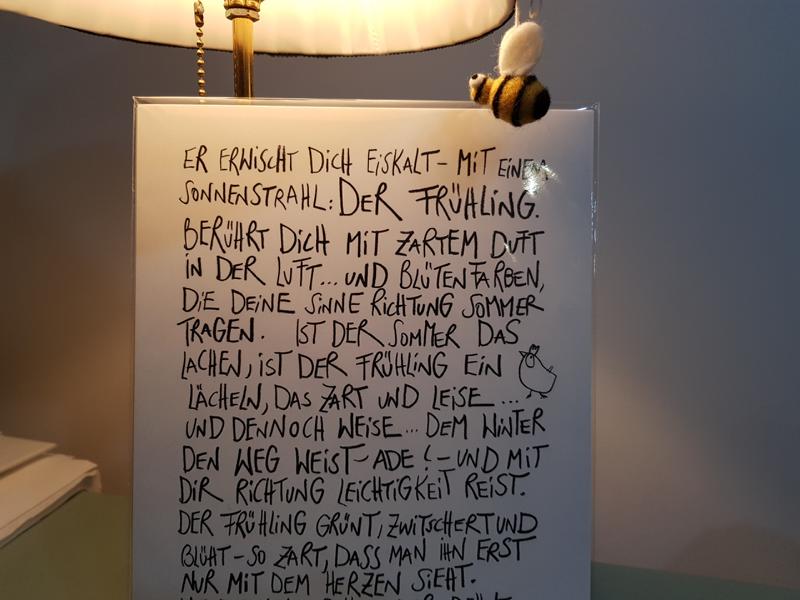 ER ERWISCHT DICH EISKALT – MIT EINEM
SONNENSTRAHL: DER FRÜHLING.
BERÜHRT DICH MIT ZARTEM DUFT
IN DER LUFT... UND BLÜTENFARBEN,
DIE DEINE SINNE RICHTUNG SOMMER
TRAGEN. IST DER SOMMER DAS
LACHEN, IST DER FRÜHLING EIN
LÄCHELN, DAS ZART UND LEISE...
UND DENNOCH WEISE... DEM WINTER
DEN WEG WEIST – ADE! – UND MIT
DIR RICHTUNG LEICHTIGKEIT REIST.
DER FRÜHLING GRÜNT, ZWITSCHERT UND
BLÜHT – SO ZART, DASS MAN IHN ERST
NUR MIT DEM HERZEN SIEHT.